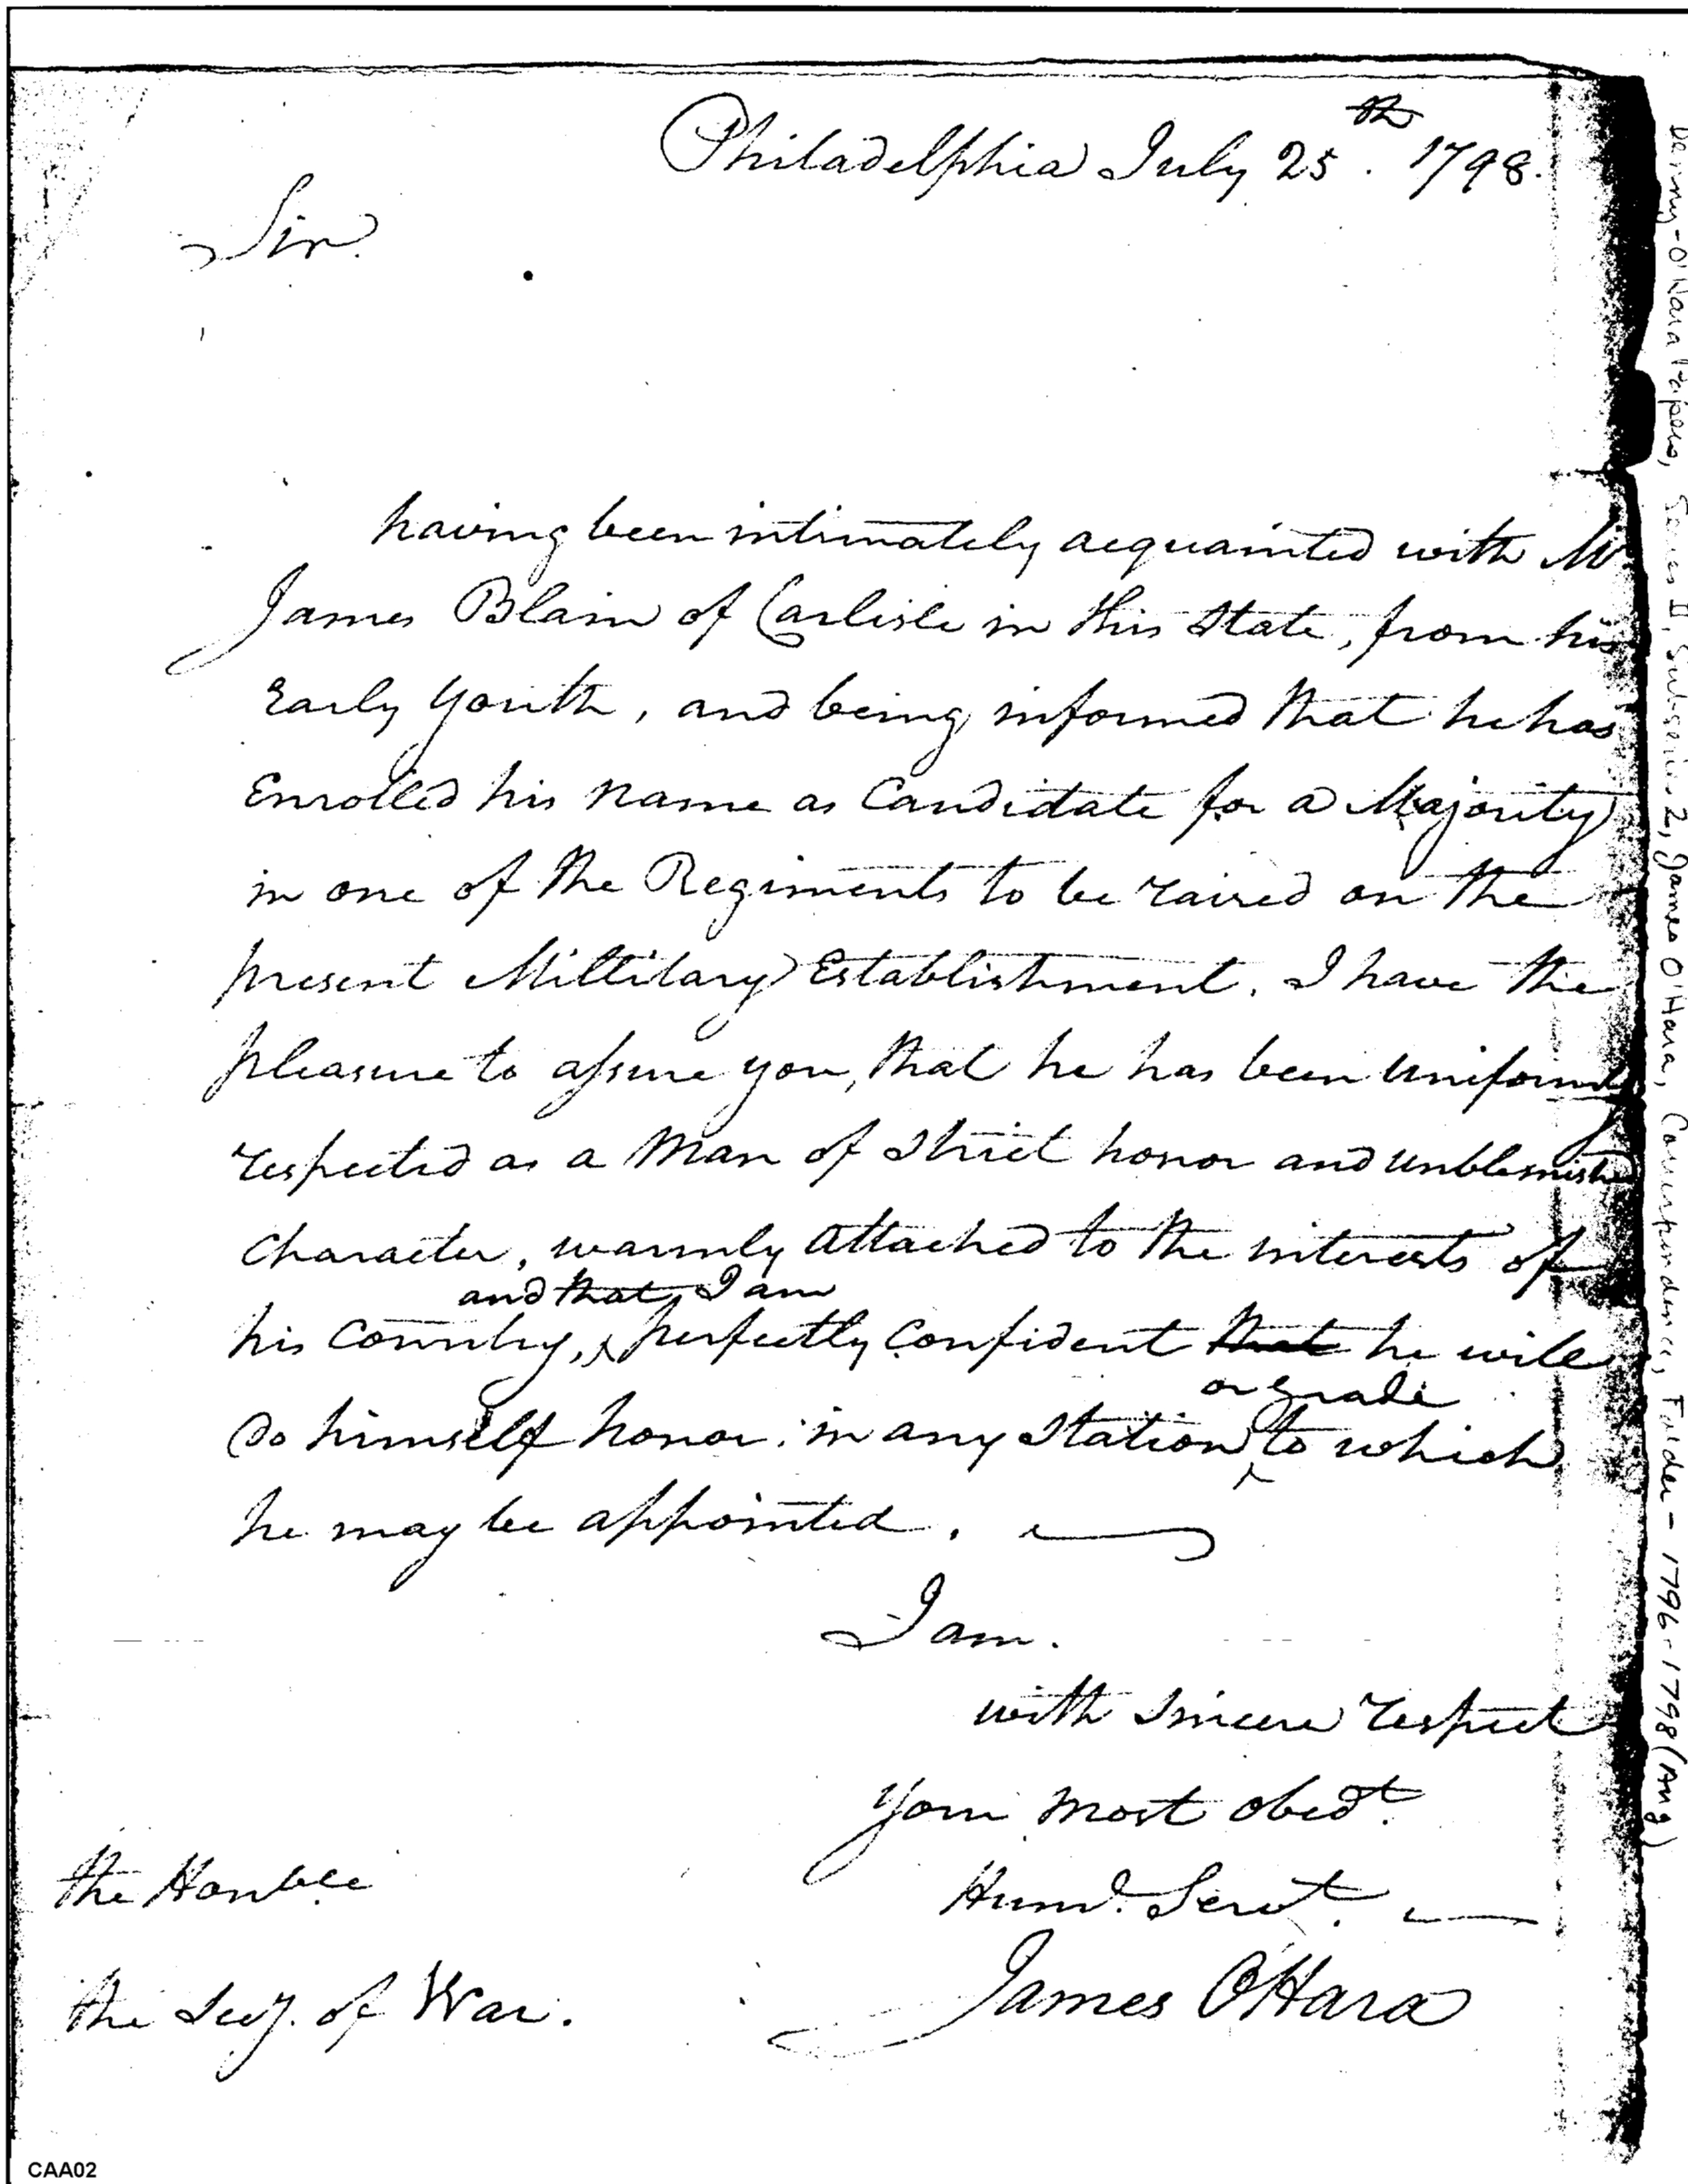 Philadelphia July 25th. 1798.
Sir.
having been intimately acquainted with Mr
James Blain of Carlisle in this State, from his
Early Youth, and being informed that he has
Enrolled his Name as Candidate for a Majority
in one of the Regiments to be raised on the
present Millitary Establishment. I have the
pleasure to assure you, that he has been Uniformly
respected as a Man of Strict honor and unblemished
Character, warmly attached to the interests of
and that I am
his Country, perfectly Confident that he will
or grade
do himself honor in any Station to which
he may be appointed.
I am.
with Sincere respect
Your most obedt.
Huml. Servt.
James O'Hara
the Honble
the Secy. of War.
Denny-O'Hara Papers, Series II, Subseries 2, James O'Hara, Correspondence, Folder - 1796-1798 (Aug)
CAA02